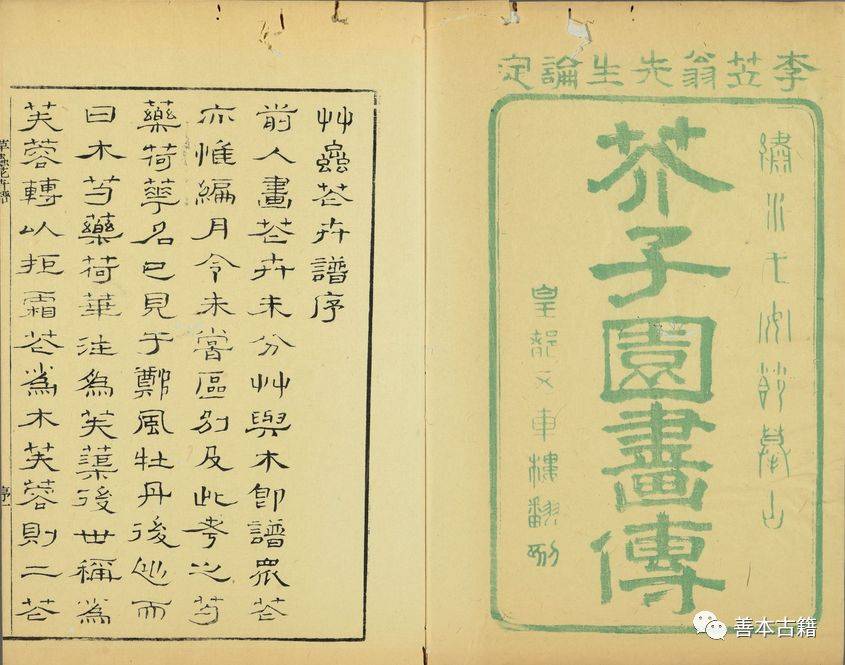 李笠翁先生論定
繡水安節摹
芥子園畫傳
皇都文車樓翻刻
艸蟲花卉譜序
前人畫花卉未分艸與木即譜眾花
亦惟編月令未嘗區別及此考之芍
藥荷華名已見于鄭風牡丹後出而
曰木芍藥荷華注為芙蕖後世稱為
芙蓉轉以拒霜花為木芙蓉則二花
草蟲花卉譜
序一
善本古籍